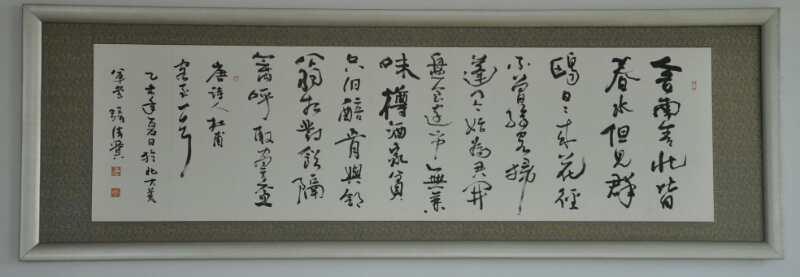 舍南舍北皆
春水但見群
鷗日日來花徑
不曾緣客掃
蓬門今始為君開
盤飧遠市無兼
味樽酒家貧
只旧醅肯與鄰
翁相對飲隔
籬呼取盡盃
唐詩人杜甫
客至一首
年夏日於北